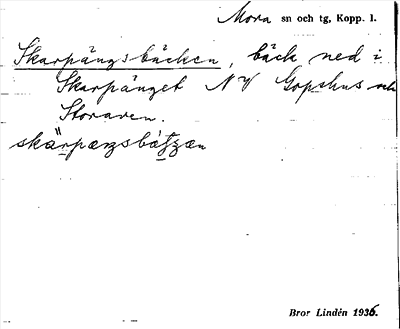 Mora sn och tg, Kopp. l.
Skarpängsbäcken, bäck ned i
Skarpänget NV Gopshus och
Storaren.
Bror Lindén 1936.